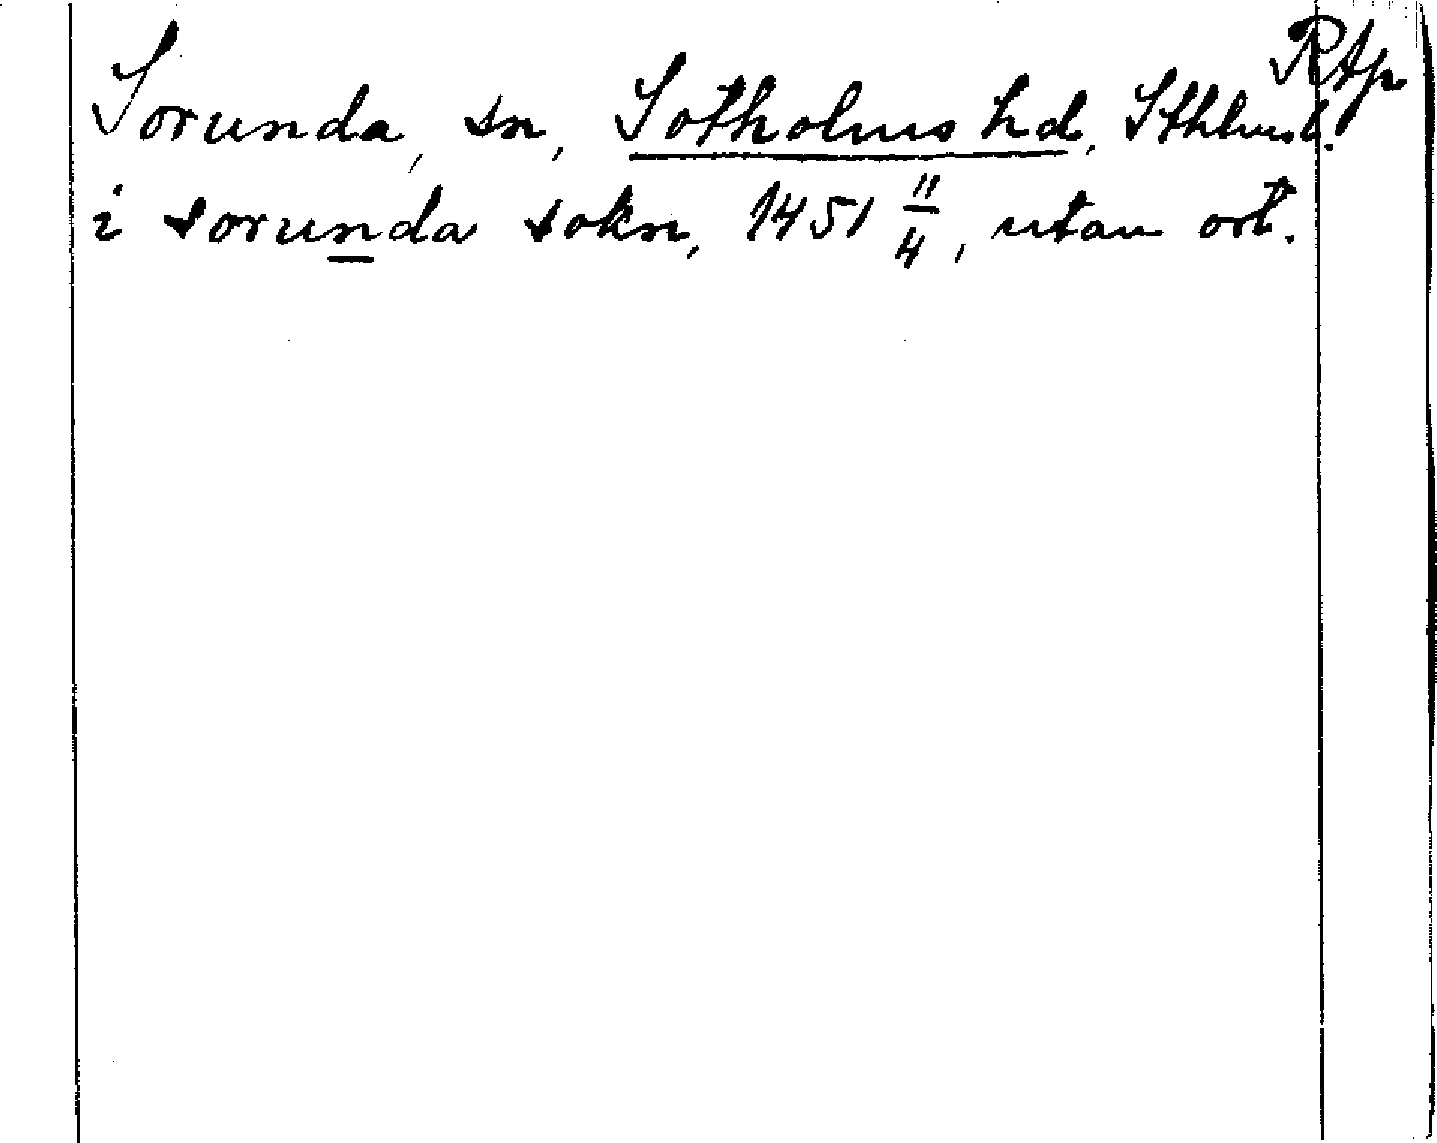 Rtp
Sorunda, sn, Sotholms hd, Sthlms l.
i sorunda sokn, 1451 11/4, utan ort.